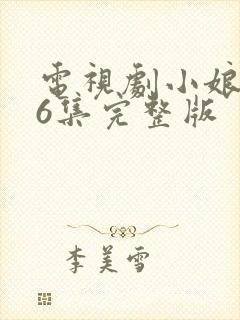 電視劇小娘
6集完整版
李美雪